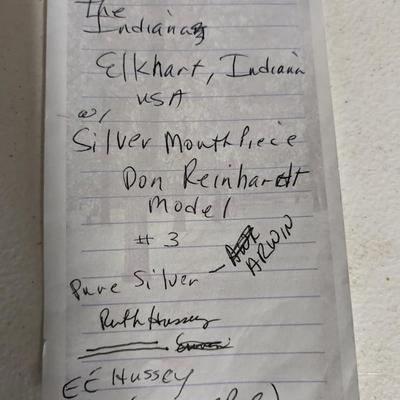 The
Indiana
Elkhart, Indiana
USA
w/
Silver MouthPiece
Don Reinhardt
Model
# 3
Pure Silver - ARWIN
Ruth Hussey
EC Hussey